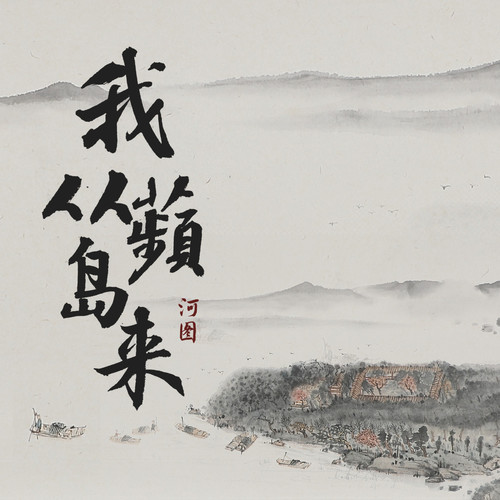 我从蘋島来
河图